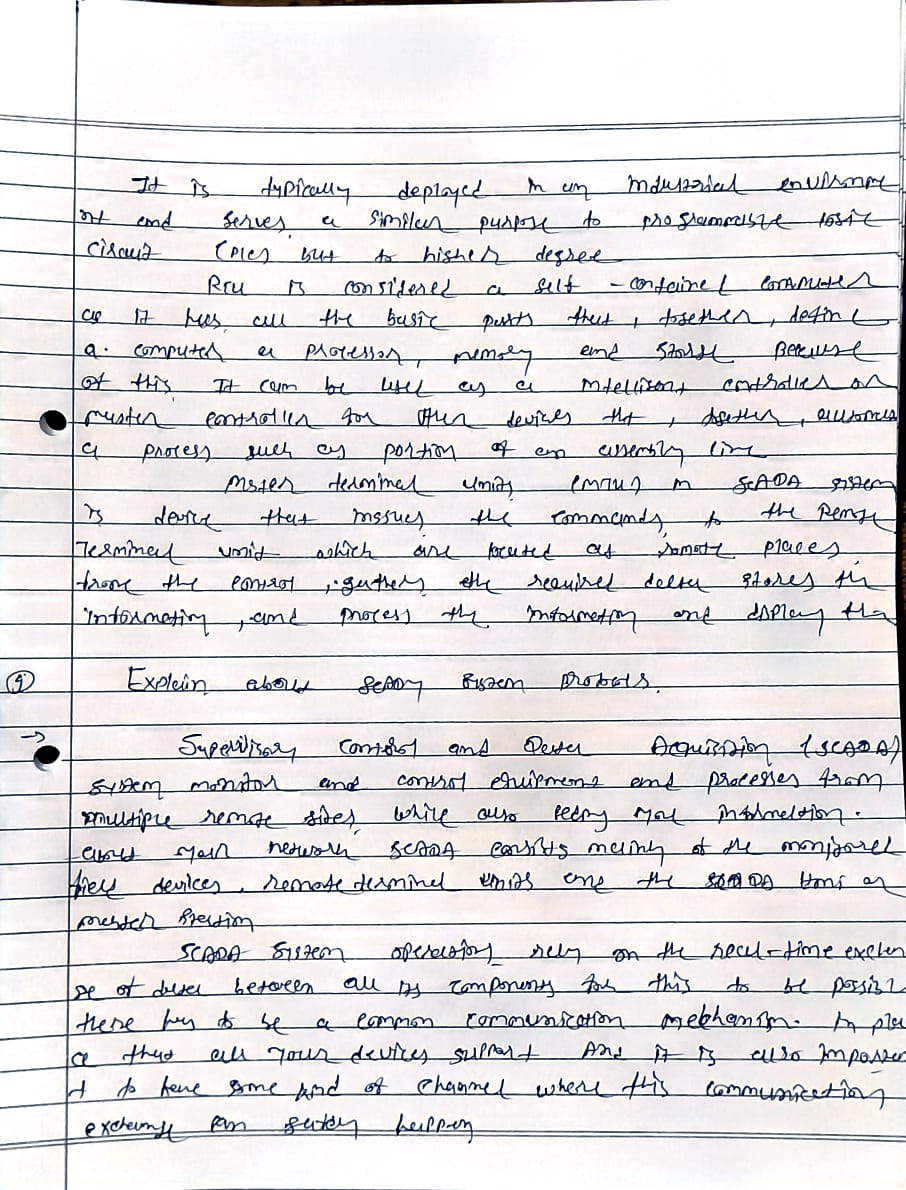 It is typically deployed in an industrial environme
nt and serves a similar purpose to programmable logic
circuit (PLC) but to higher degree
RTU is considered a self-contained computer
as it has all the basic parts that, together, define
a computer a processor, memory and storage Because
of this, It can be used as a intelligent controller or
master controller for other devices that, together, automates
a process such as portion of an assembly line
Master terminal units (MTU) in SCADA system
is device that issues the commands to the Remote
Terminal unit which are located at remote places
from the control, gathers the required data stores the
information, and process the information and display the
9 Explain about SCADA system
→
Supervisory control and Data Acquisition (SCADA)
system monitor and control equipment and processes from
multiple remote sites, while also you information.
about your network SCADA consists mainly of the monitored
field devices, remote terminal units and the SCADA or
master station
SCADA system operations rely on the real-time exchan
ge of data between all its components for this to be possible
there has to be a common communication mechanism. In pla
ce that all your devices support And it is also importan
t to have some kind of channel where this communication
exchange can happen